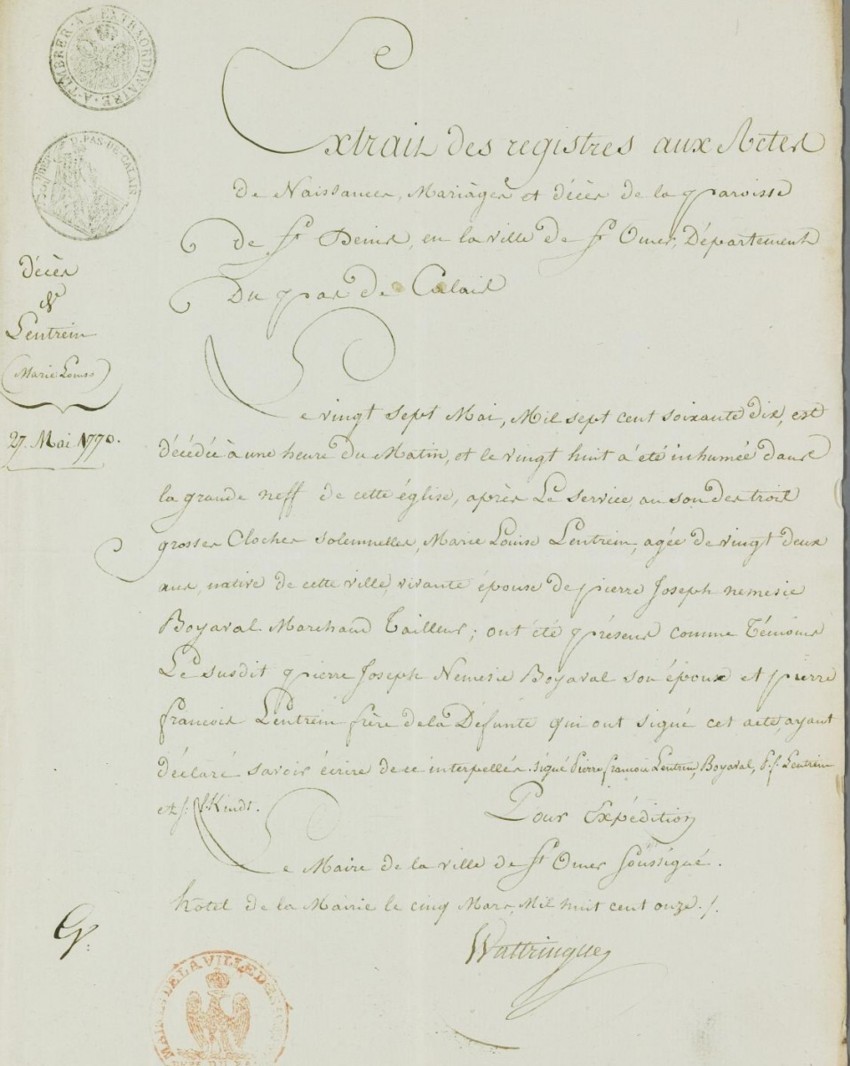 A TIMBRER A L'EXTRAORDINAIRE
PAS-DE-CALAIS
Extrait des registres aux Actes
de Naissances, Mariages et décès de la paroisse
de St Denis, en la ville de St Omer, Département
Du pas de Calais
Décès
de
Lentrein
(Marie Louise)
27. Mai 1770.
Le vingt sept Mai, Mil sept cent soixante dix, est
décédée à une heure du Matin, et le vingt huit a été inhumée dans
la grande neff de cette église, après Le service, au son des trois
grosses Cloches solemnelles, Marie Louise Lentrein, agée de vingt deux
ans, native de cette ville, vivante épouse de pierre Joseph nemesie
Boyaval Marchand Tailleur; ont été présens comme Témoins
Le susdit pierre Joseph Nemesie Boyaval son époux et pierre
francois Lentrein frère de la Défunte qui ont signé cet acte, ayant
déclaré savoir écrire de ce interpellés. signé Pierre françois Lentrein, Boyaval, P. f. Lentrein
et
Pour Expédition
Le Maire de la ville de St Omer soussigné.
hotel de la Mairie le cinq Mars, Mil huit cent onze./.
Wattringue
MAIRIE DE LA VILLE DE